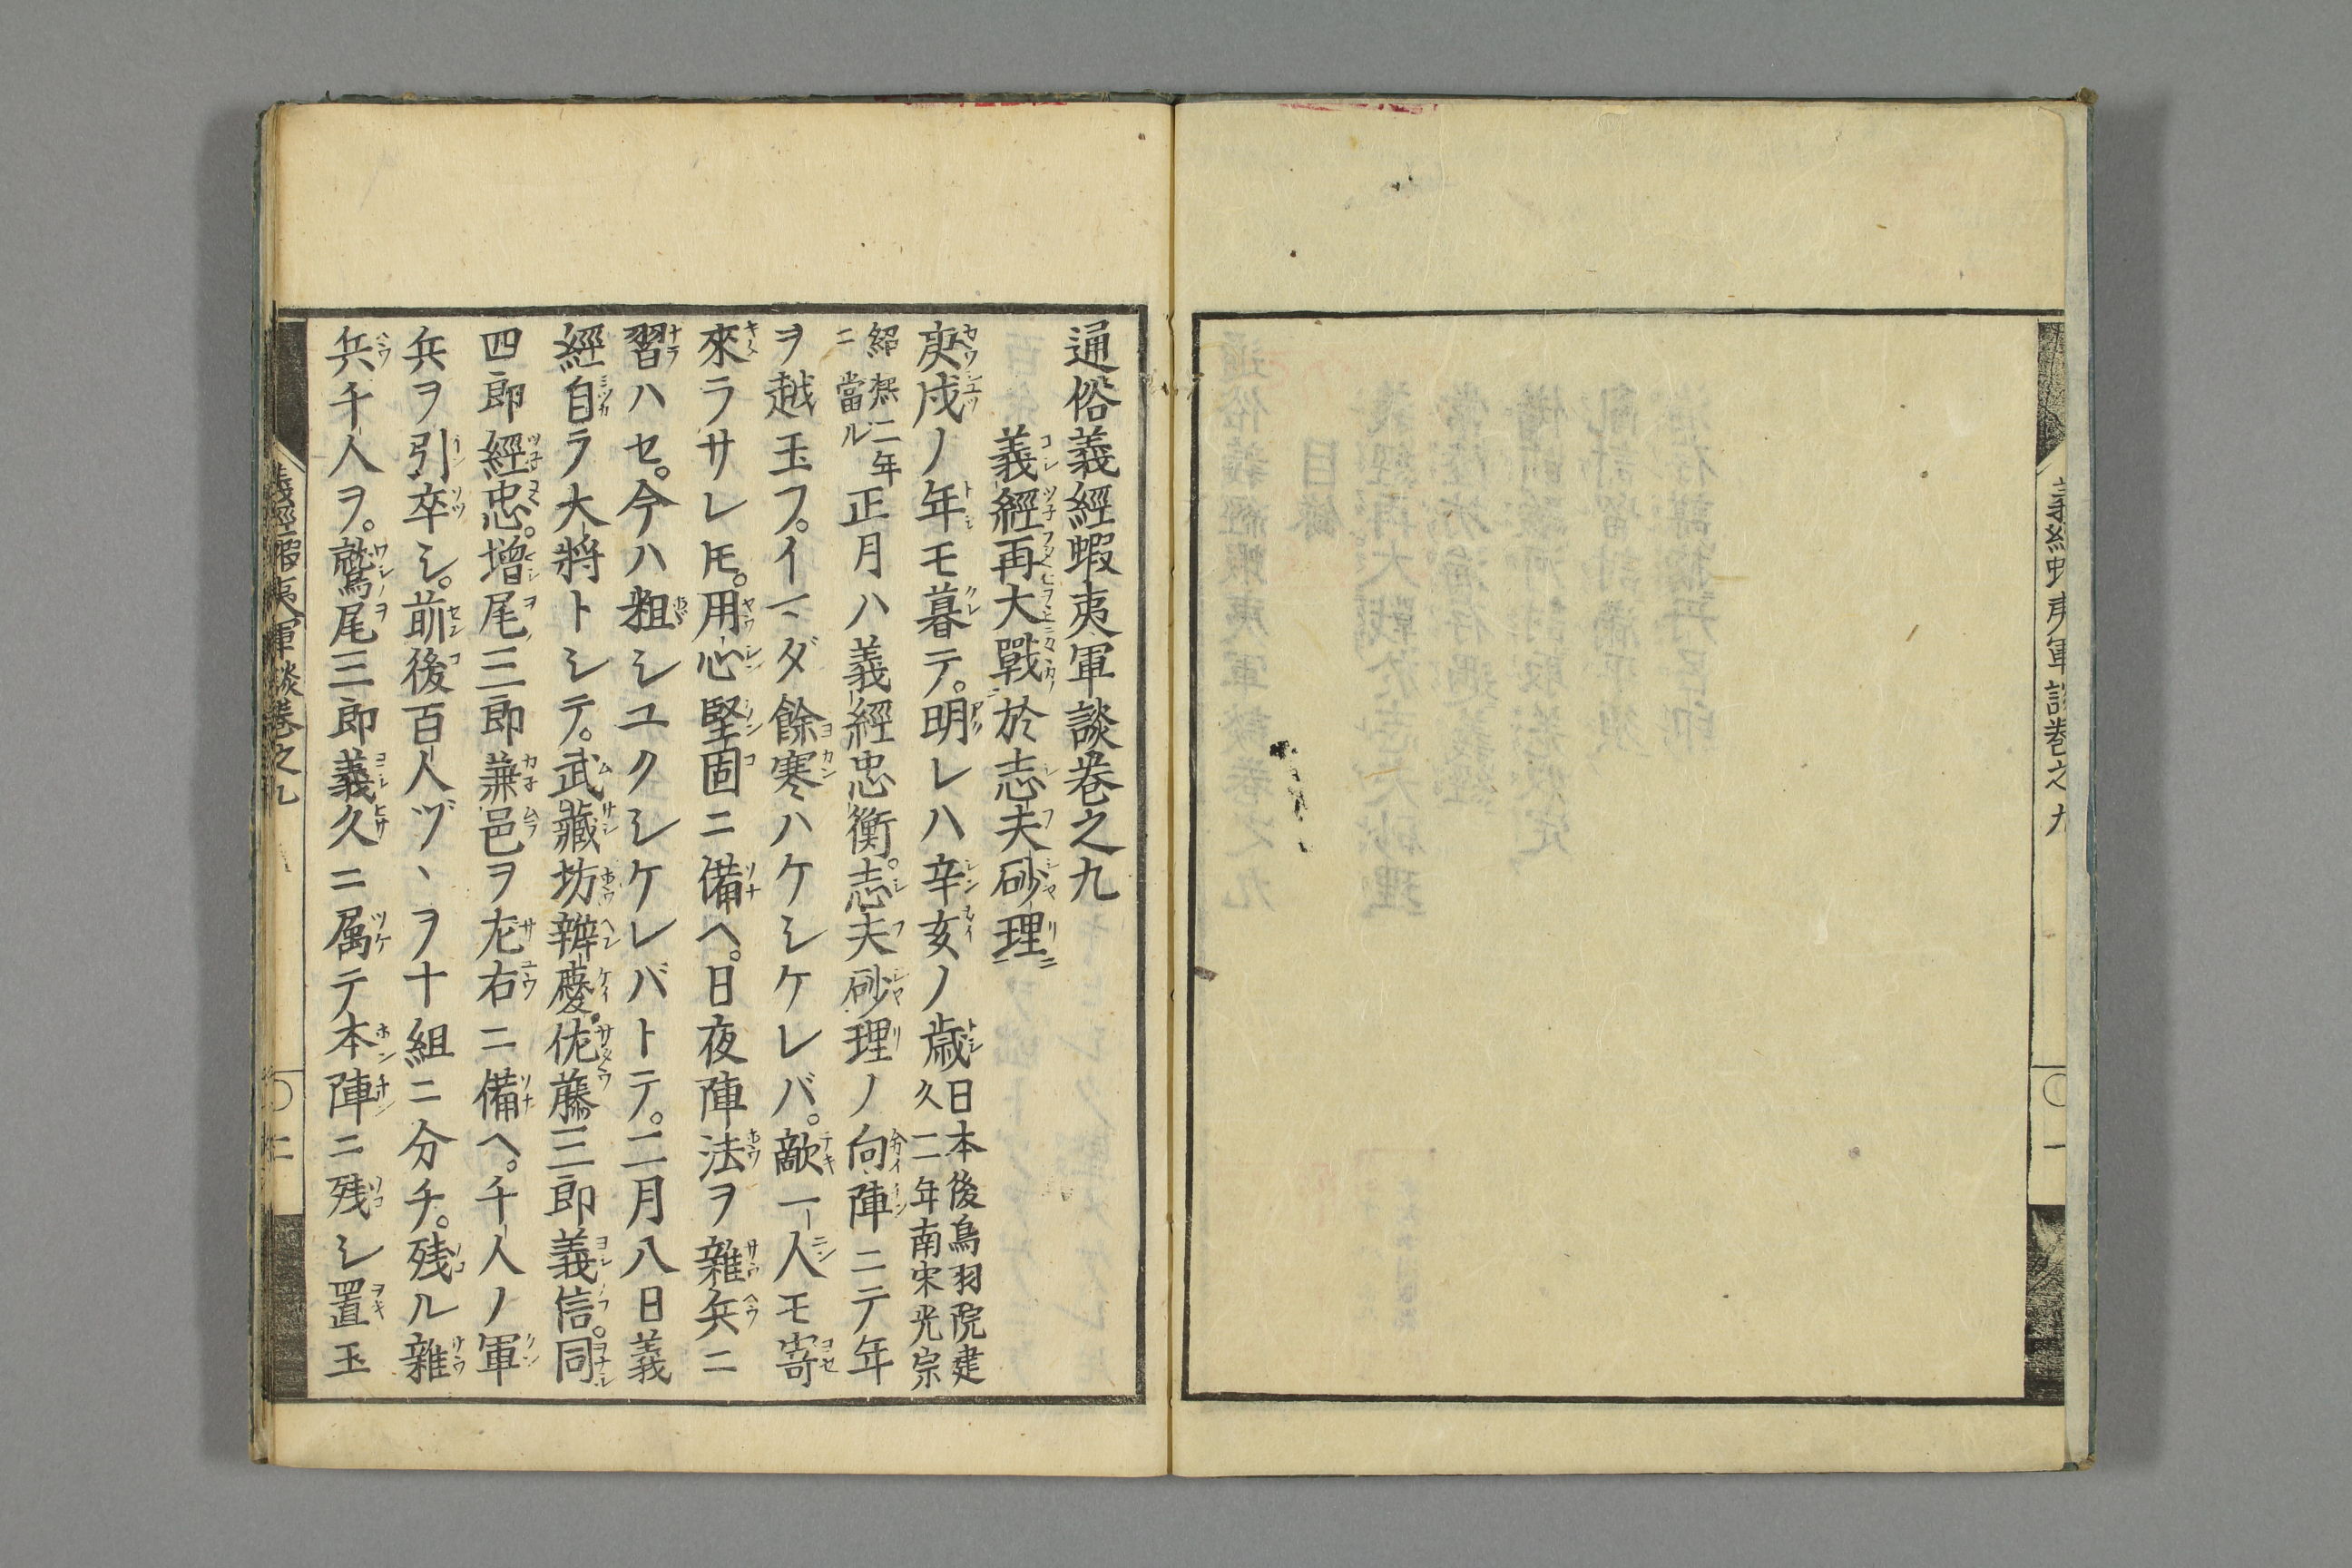 義經蝦夷軍談卷之九
一
通俗義經蝦夷軍談卷之九
義經再大戰於志夫砂理
庚戌ノ年モ暮テ。明レハ辛亥ノ歳日本後鳥羽院建
久二年南宋光宗
紹熙二年
ニ當ル
正月ハ義經忠衡。志夫砂理ノ向陣ニテ年
ヲ越玉フ。イマダ餘寒ハケシケレバ。敵一人モ寄
來ラサレ𪜈。用心堅固ニ備ヘ。日夜陣法ヲ雜兵ニ
習ハセ。今ハ粗シユクシケレバトテ。二月八日義
經自ラ大將トシテ。武藏坊辨慶。佐藤三郎義信。同
四郎經忠。增尾三郎兼邑ヲ左右ニ備ヘ。千人ノ軍
兵ヲ引卒シ。前後百人ヅヽヲ十組ニ分チ。残ル雜
兵千人ヲ。鷲尾三郎義久ニ属テ本陣ニ残シ置玉
義經蝦夷軍談卷之九
二